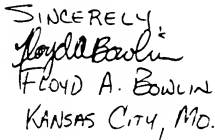 SINCERELY
Floyd A Bowlin
FLOYD A. BOWLIN
KANSAS CITY, MO.